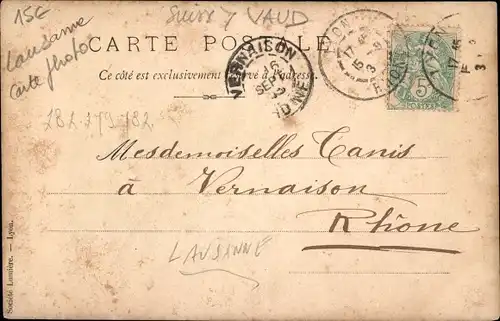 15€
Suisse VAUD
Lausanne
Carte photo
CARTE POSTALE
Ce côté est exclusivement réservé à l'adresse.
VERNAISON
16
SEPT
RHONE
LYON
RHONE
5
Mesdemoiselles Canis
à Vernaison
Rhône
LAUSANNE
Société Lumière. — Lyon.